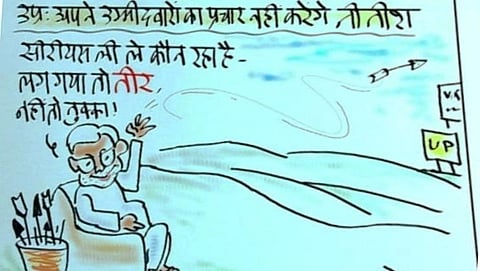 उप्र: अपने उम्मीदवारों का प्रचार नहीं करेंगे नीतीश
सीरीयस ली ले कौन रहा है-
लग गया तो तीर,
नहीं तो तुक्का!
UP